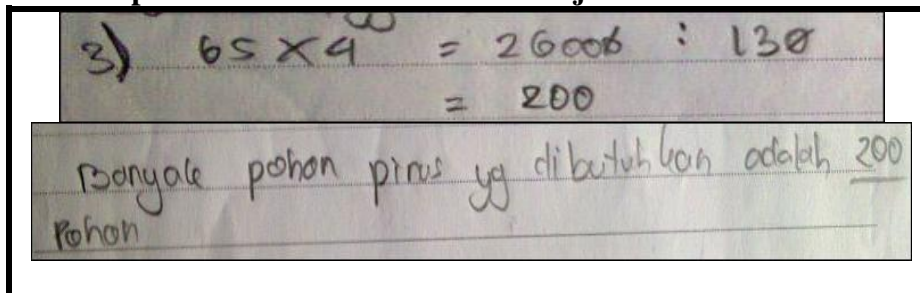 3) 65 × 400 = 26000 : 130
= 200
Banyak pohon pinus yg dibutuhkan adalah 200
Pohon